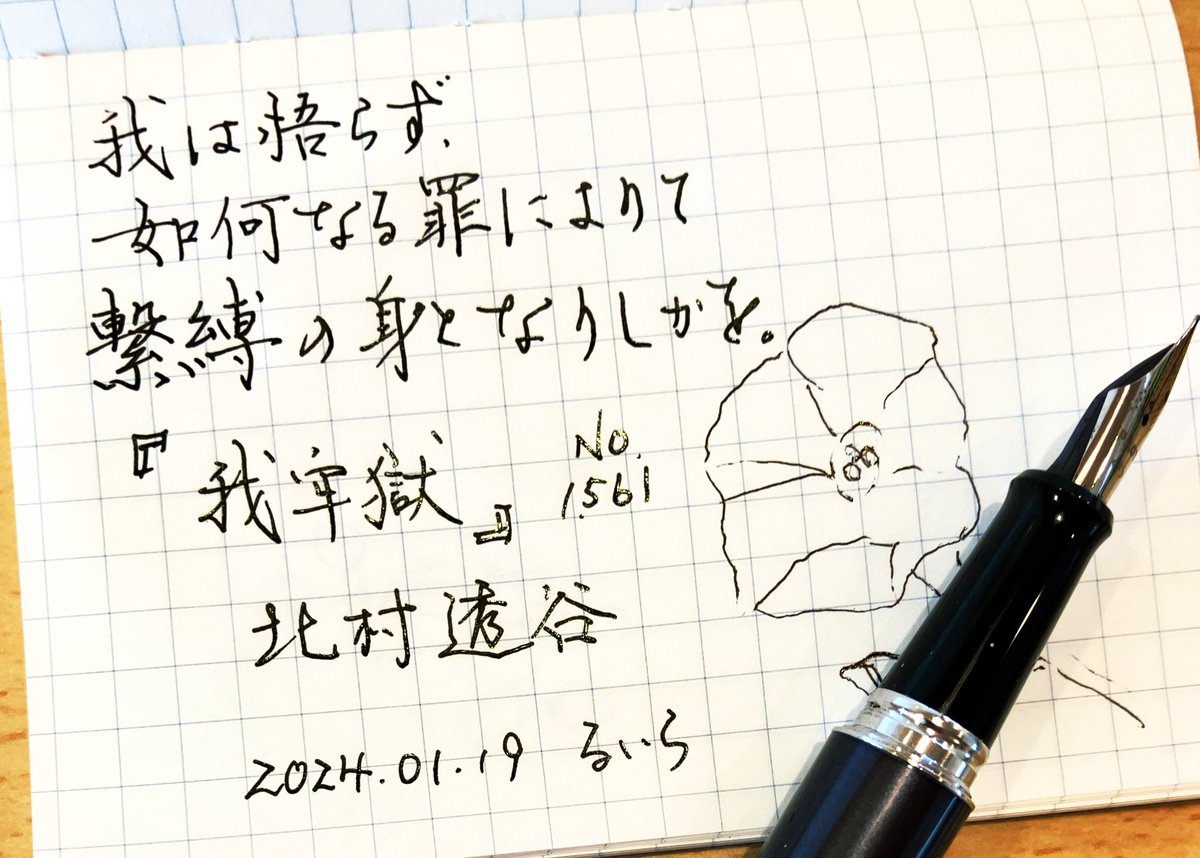 我は悟らず、
如何なる罪によりて
繋縛の身となりしかを。
『我牢獄』
No.
1561
北村透谷
2024.01.19 るいら